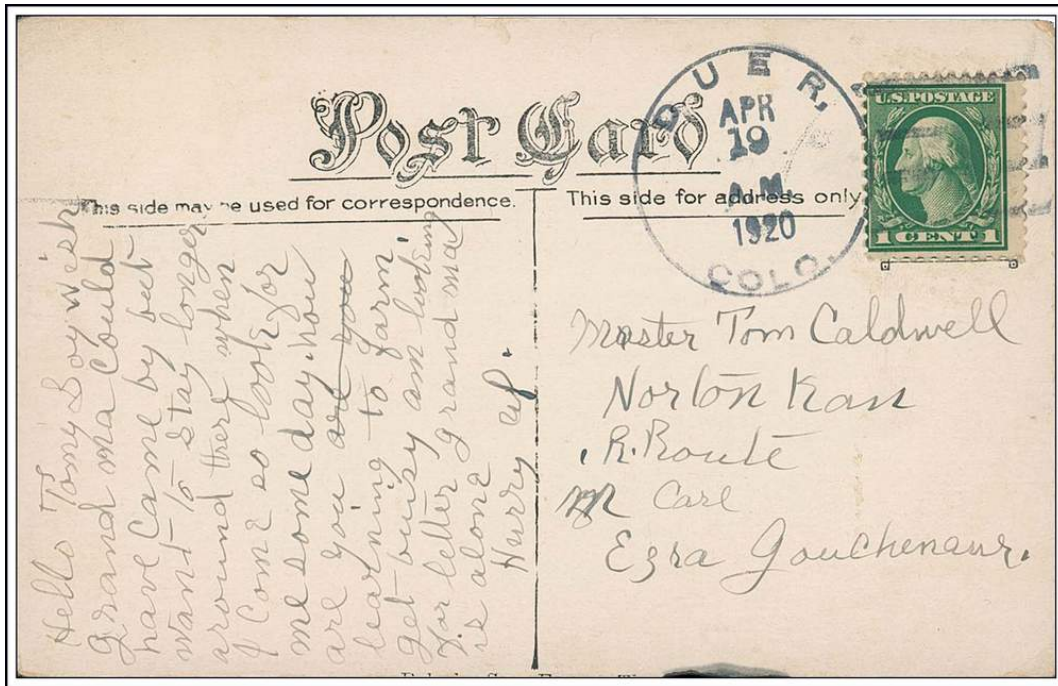 Post Card
This side may be used for correspondence.
This side for address only
DUER,
APR
19
A.M.
1920
COLO.
U.S. POSTAGE
1 CENT 1
Hello Tomy Boy wish
grand ma Could
have Came by but
want to stay longer
around there when
I Come so look for
me some day. how
are you are you
learning to farm
get busy am looking
for letter grand ma
is alone
Hurry up.
Master Tom Caldwell
Norton Kan
R. Route
Care
Ezra Gouchenaur.